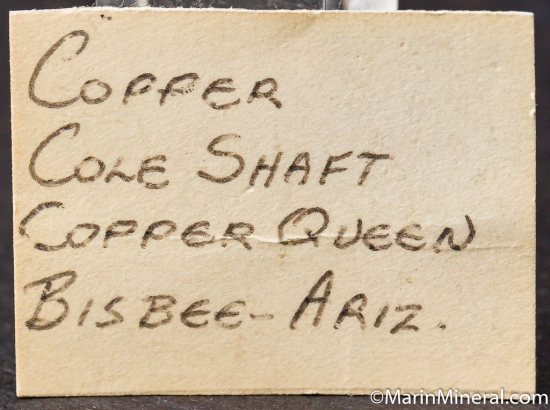 COPPER
COLE SHAFT
COPPER QUEEN
BISBEE - ARIZ.
©MarinMineral.com